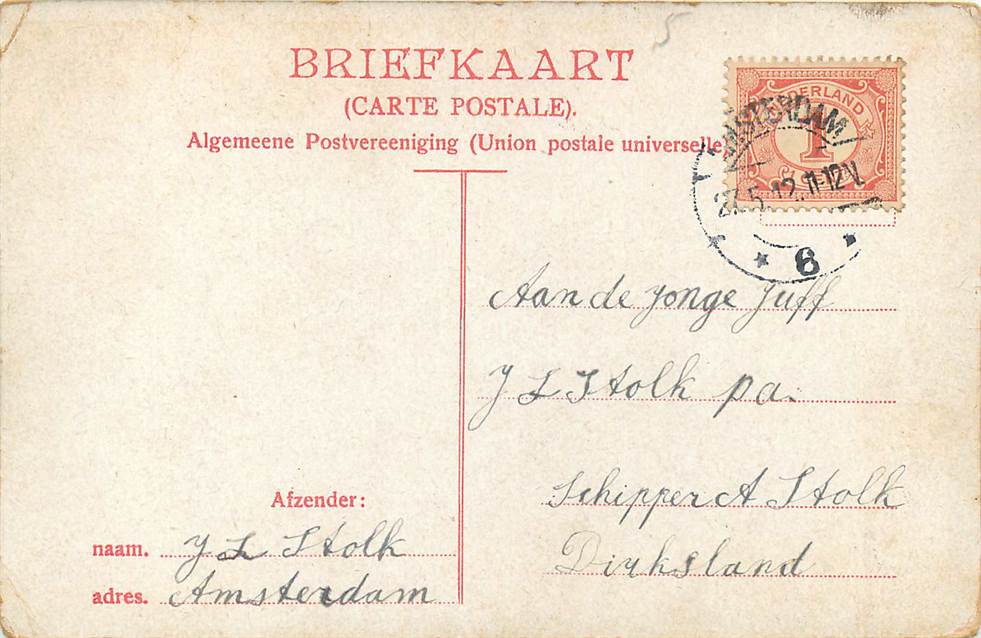 5
BRIEFKAART
(CARTE POSTALE).
Algemeene Postvereeniging (Union postale universelle)
NEDERLAND
1
AMSTERDAM
27.5.12.11-12V.
6
Aan de jonge Juff
J L Stolk pa.
Schipper A Stolk
Dirksland
Afzender:
naam. J L Stolk
adres. Amsterdam